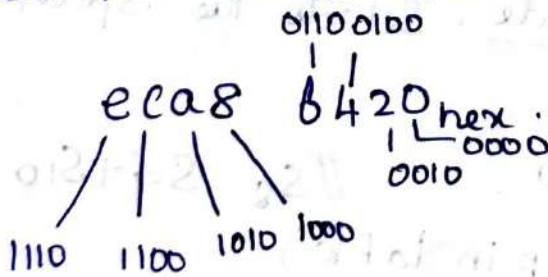 0110 0100
eca8 6420hex.
0000
0010
1110 1100 1010 1000